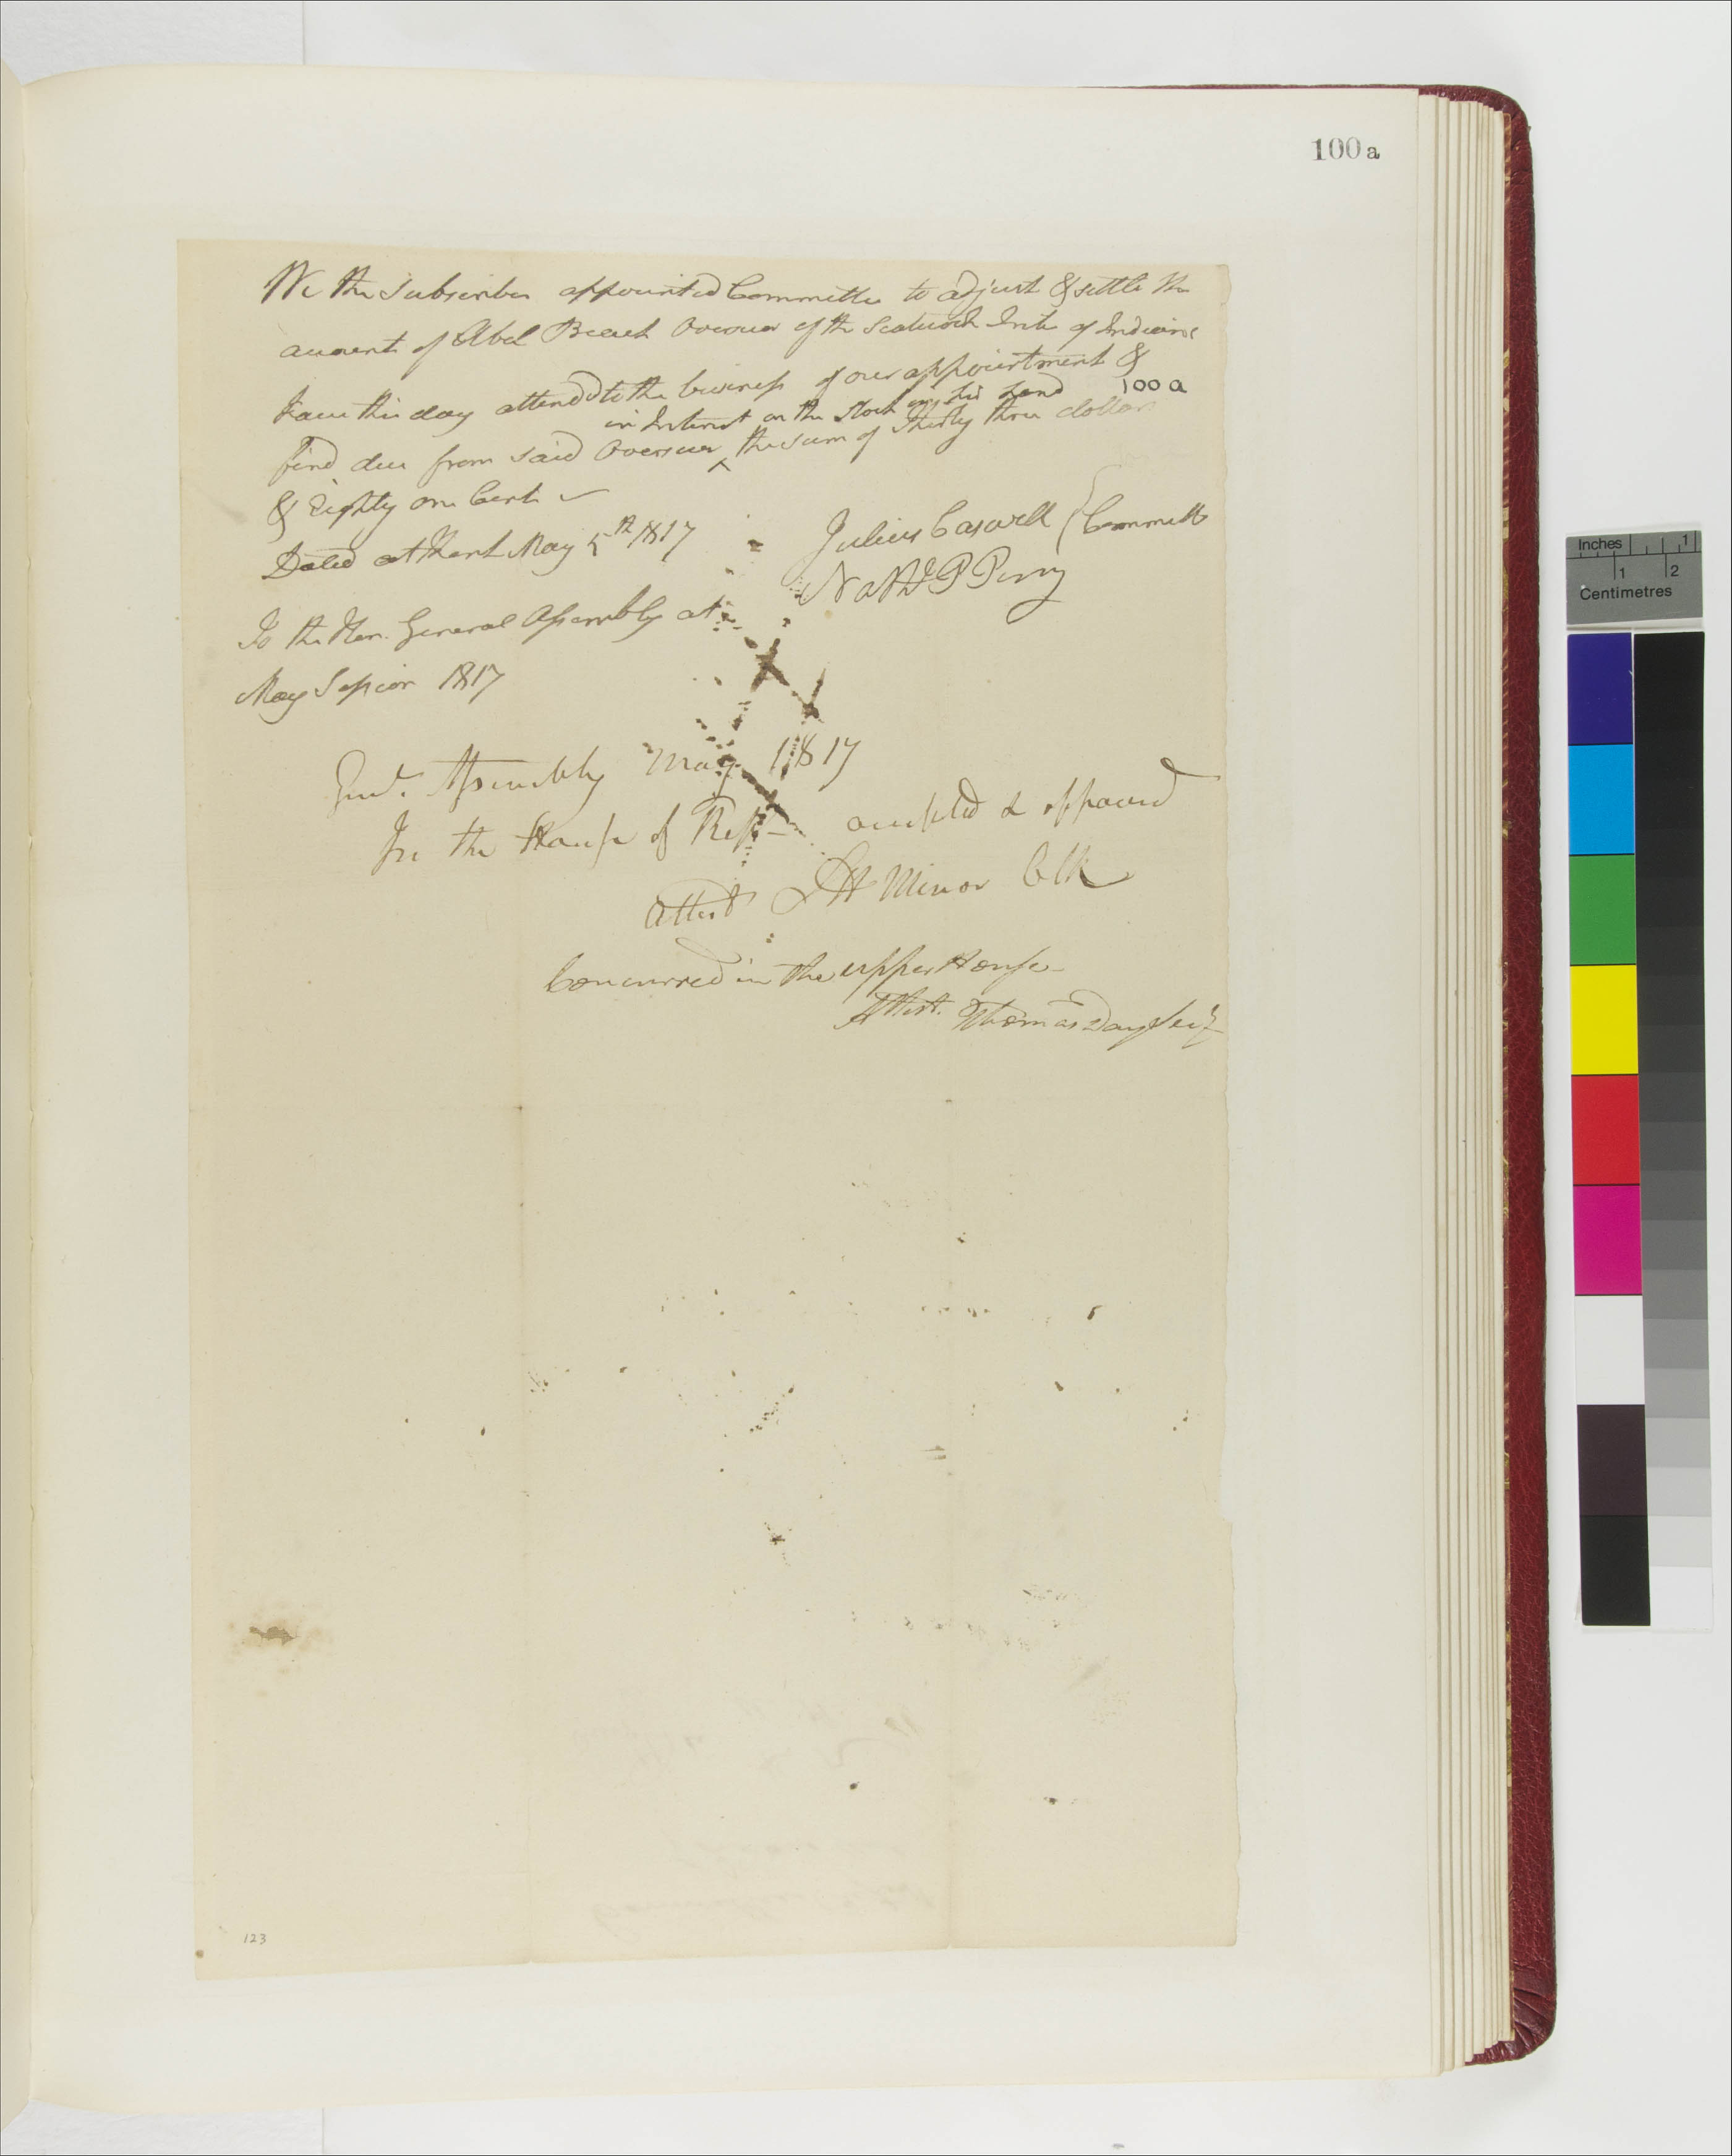 100a
We the Subscriber appointed Committee to adjust & settle the
account of Abel Beach Overseer of the Scatucook Tribe of Indians
have this day attendd to the business of our appointment &
100 a
in Interest on the Stock in his hand
find due from said Overseer ^ the sum of Thirty three dollars
& Eighty one Cent
Dated at Kent May 5th 1817
Julius Caswell } Committe
Nathl P Perry
To the Hon. General Assembly at
May Session 1817
Genl. Assembly May 1817
In the House of Rep accepted & approved
Attest S H Minor Clk
Concurred in the upper House
Attest. Thomas Day Secy
123
Inches 1
1 2
Centimetres